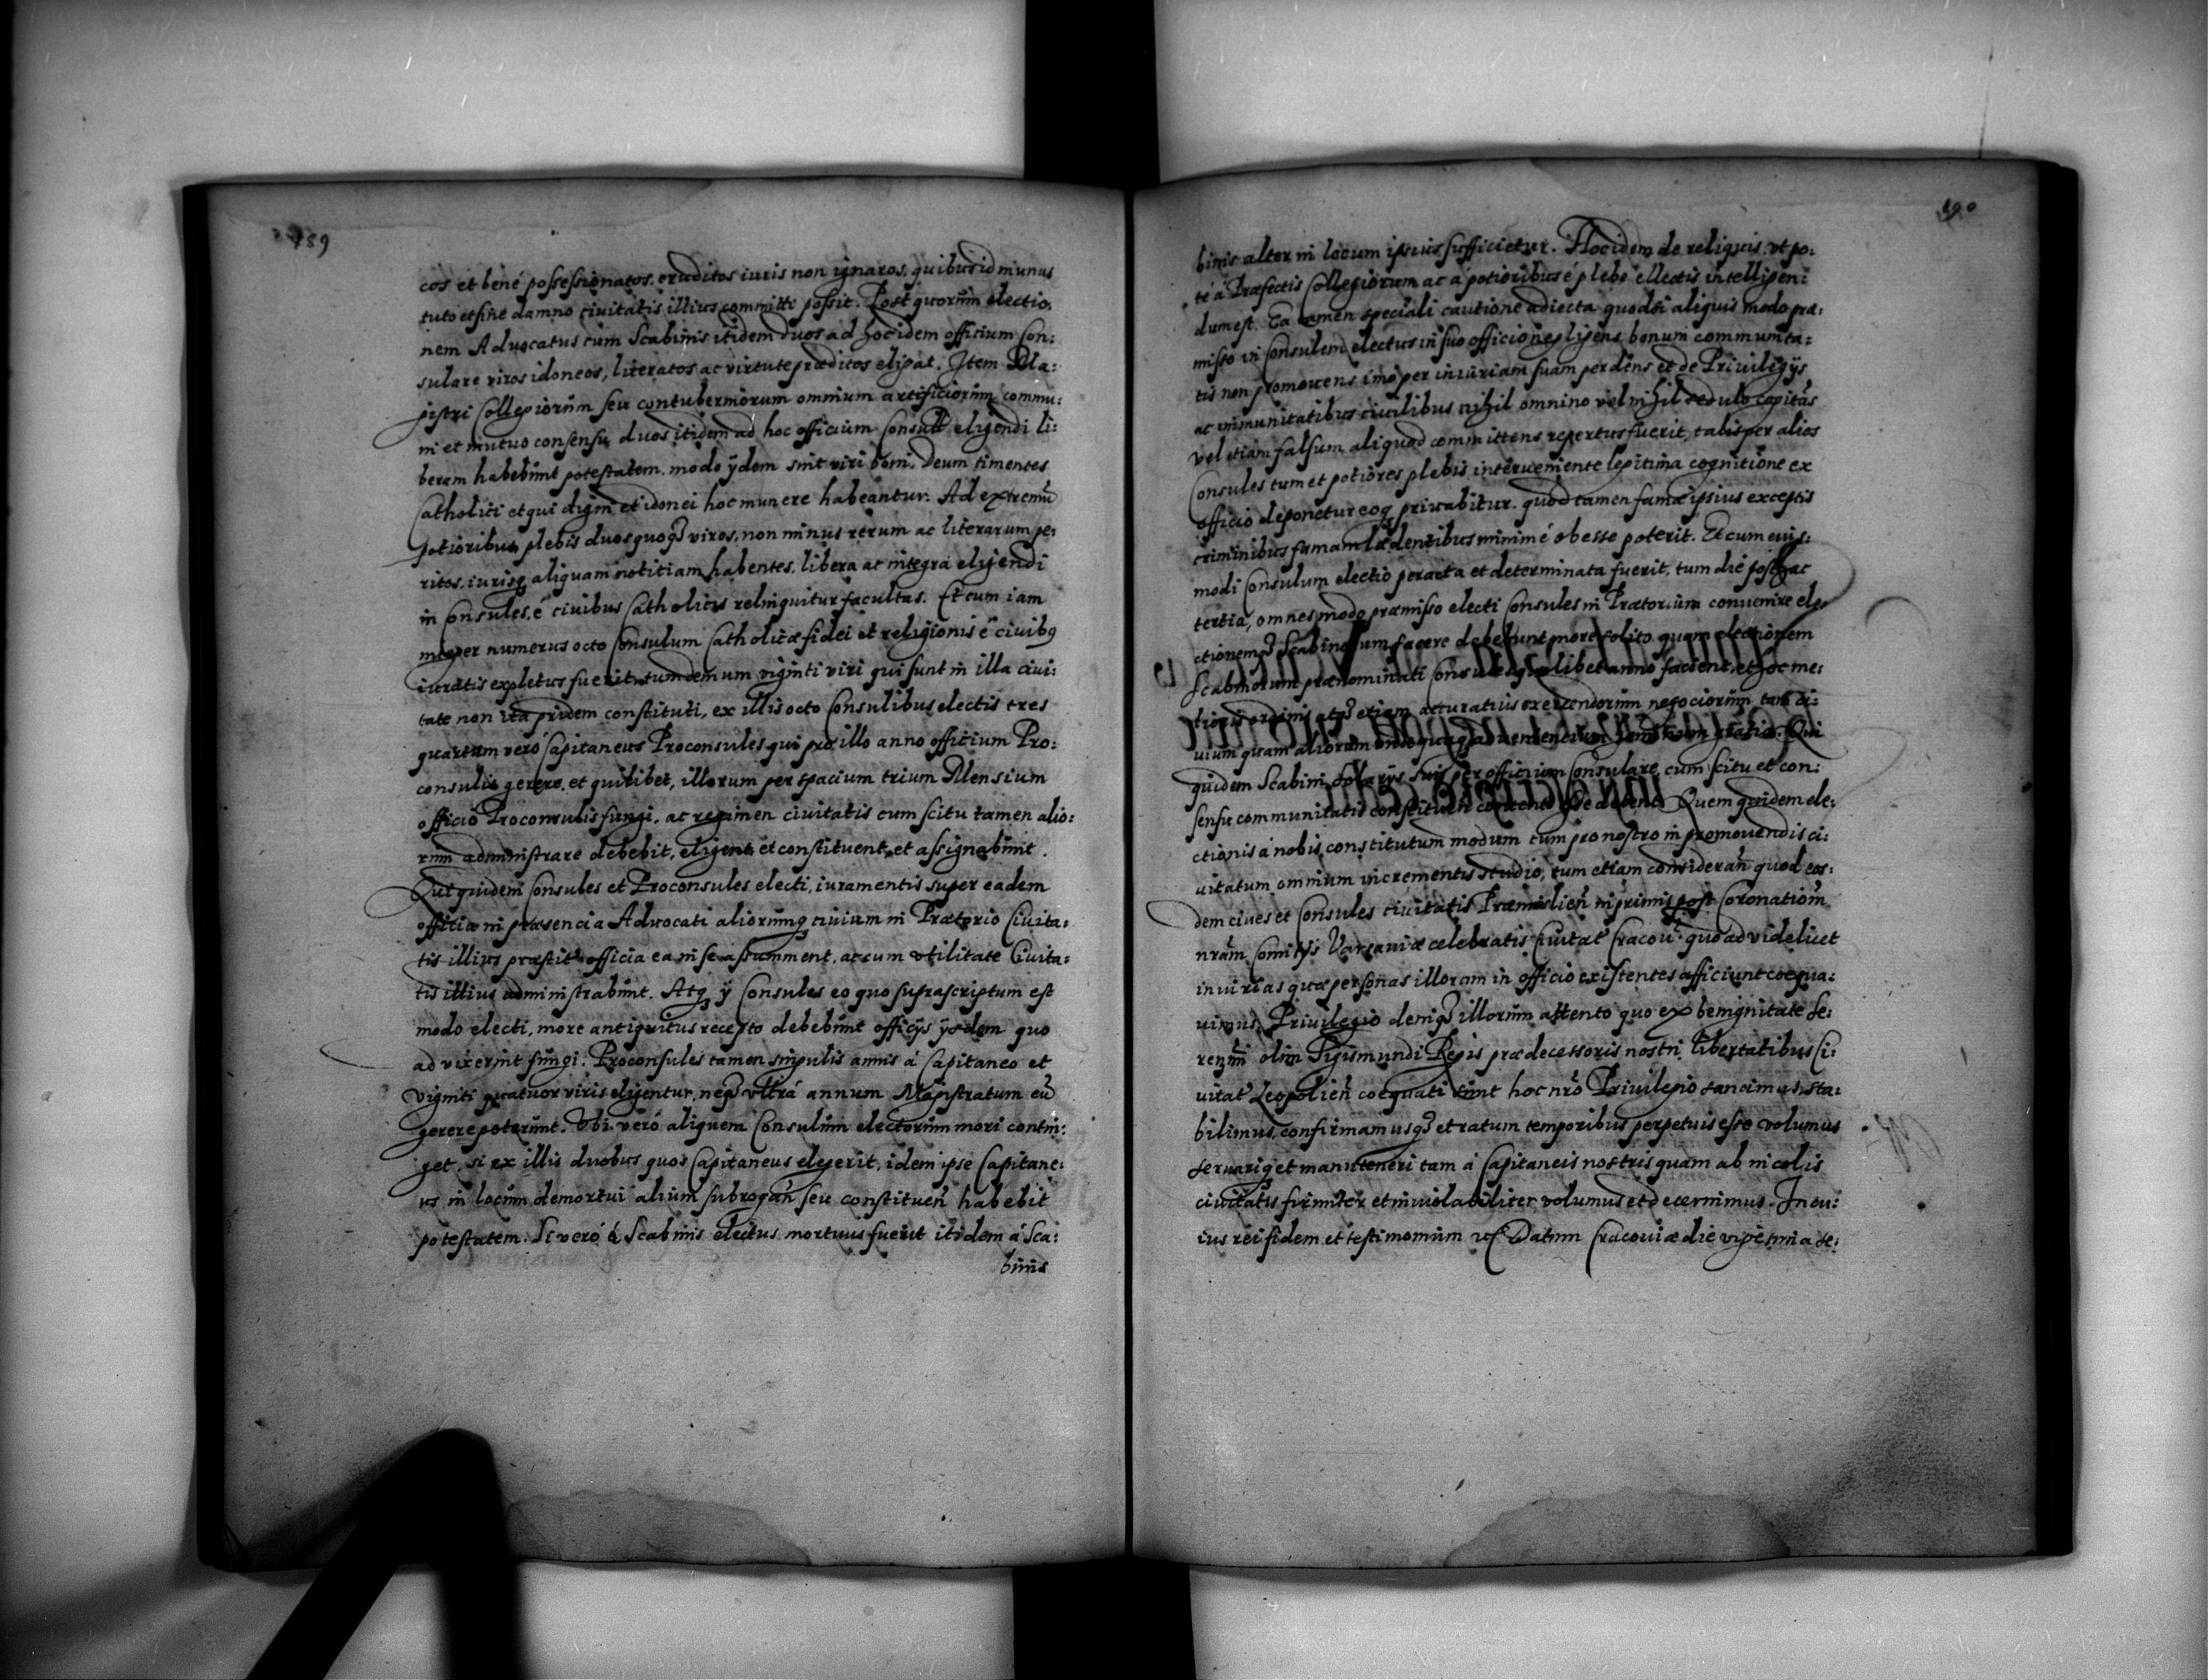 189
cos et bené possessionatos, eruditos iuris non ignaros, quibus id munus
tuto et sine damno civitatis illius committi possit. Post quorum electio,
nem Advocatus cum Scabinis itidem duos ad hoc idem officium Con:
sulare viros idoneos, literatos ac virtute præditos eligat. Item Ma:
gistri Collegiorum seu contuberniorum omnium artificiorum commu:
ni et mutuo consensu duos itidem ad hoc officium eligendi li:
beram habebunt potestatem, modo ÿdem sint viri boni, Deum timentes
Catholici et qui digni et idonei hoc munere habeantur. Ad extremũ
potioribus plebis duos quoq viros, non minus rerum ac literarum pe:
ritos, iurisq aliquam notitiam habentes, libera ac integra eligendi
in Consules, é civibus Catholicis relinquitur facultas. Et cum iam
numerus octo Consulum Catholicæ fidei et religionis é civibq
iuratis expletus fuerit, tum demum viginti viri qui sunt in illa civi:
tate non ita pridem constituti, ex illis octo Consulibus electis tres
quartum veró Capitaneus Proconsules qui pro illo anno officium Pro:
consulis gerere, et quilibet, illorum per spacium trium Mensium
officio Proconsulis fungi, ac regimen civitatis cum scitu tamen alio:
rum administrare debebit, eligent et constituent, et assignabunt.
Qui quidem Consules et Proconsules electi, iuramentis super eadem
officia in præsencia Advocati aliorumq civium in Prætorio Civita:
tis illius præstitis officia ea in se assumment, ac cum utilitate Civita:
tis illius administrabunt. Atq ÿ Consules eo quo suprascriptum est
modo electi, more antiquitus recepto debebunt officÿs ÿsdem quo
ad vixerint fungi. Proconsules tamen singulis annis á Capitaneo et
viginti quatuor viris eligentur, neq ultrá annum Magistratum eũ
gerere poterunt. Ubi veró aliquem Consulum electorum mori contin:
get, si ex illis duobus quos Capitaneus elegerit, idem ipse Capitane:
us in locum demortui alium subrogañ seu constitueñ habebit
potestatem. Si veró é Scabinis electus mortuus fuerit itidem á Sca:
binis
190
binis alter in locum ipsius sufficietur. Hoc idem de reliquis, ut po:
té á Præfectis Collegiorum ac á potioribus é plebe ellectis intelligen:
dum est. Ea tamen speciali cautione adiecta quod si aliquis modo præ:
misso in Consulem electus in suo officio negligens, bonum communita:
tis non promovens imo per iniuriam suam perdens et de Privilegÿs
ac immunitatibus civilibus nihil omnino vel nihil sedulo
vel etiam falsum aliquod committens repertus fuerit, talis per alios
Consules tum et potiores plebis interveniente legitima cognitione ex
officio deponetur eoq privabitur, quod tamen famæ ipsius exceptis
criminibus famam lædentibus minimé obesse poterit. Et cum eius:
modi Consulum electio peracta et determinata fuerit, tum die posthac
tertia, omnes modo præmisso electi Consules in Prætorium convenire ele,
ctionemq Scabinorum facere debebunt more solito quam electionem
Scabinorum prænominati Consules quolibet anno facient, et hoc me:
lioris ordinis atq etiam accuratius exercendorum negociorum tam ci:
vium quam aliorum advenientium gratia. Qui
quidem Scabini Solarÿs suis per officium Consulare, cum scitu et con:
sensu communitatis constitutis contenti esse debent. Quem quidem ele:
ctionis á nobis constitutum modum cum pro nostro in promovendis ci:
vitatum omnium incrementis studio, tum etiam considerañ quod eos:
dem cives et Consules civitatis Præmislieñ in primis post Coronationẽ
nram Comitÿs Varsaviæ celebratis Civitat Cracov: quo ad videlicet
iniurias quæ personas illorum in officio existentes afficiunt coequa:
vimus, Privilegio deniq illorum attento quo ex benignitate Se:
renmi olim Sigismundi Regis prædecessoris nostri, libertatibus Ci:
vitat Leopolieñ coequati sunt hoc nro Privilegio sancimus, sta:
bilimus, confirmamusq et ratum temporibus perpetuis esse volumus
servariq et manuteneri tam á Capitaneis nostris quam ab incolis
civitatis firmiter et inviolabiliter volumus et decernimus. In cu:
ius rei fidem et testimonium Datum Cracoviæ die vigesima se: